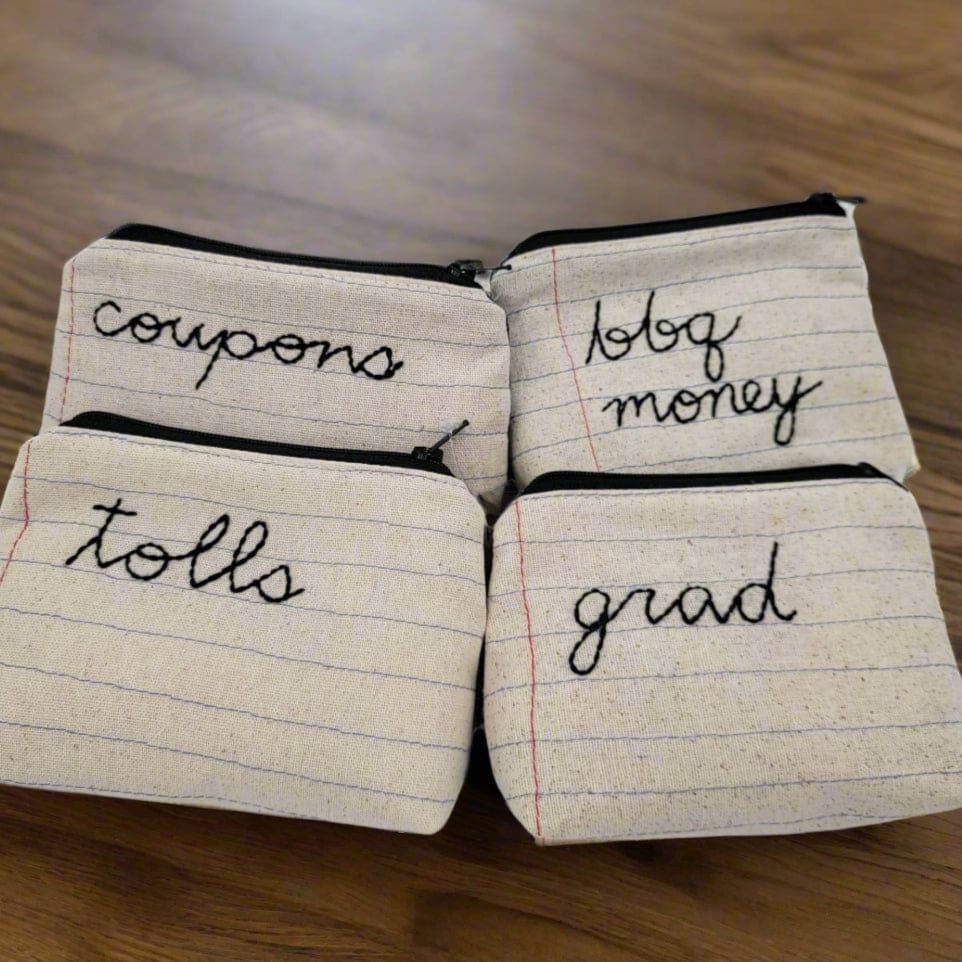 coupons
bbq
money
tolls
grad